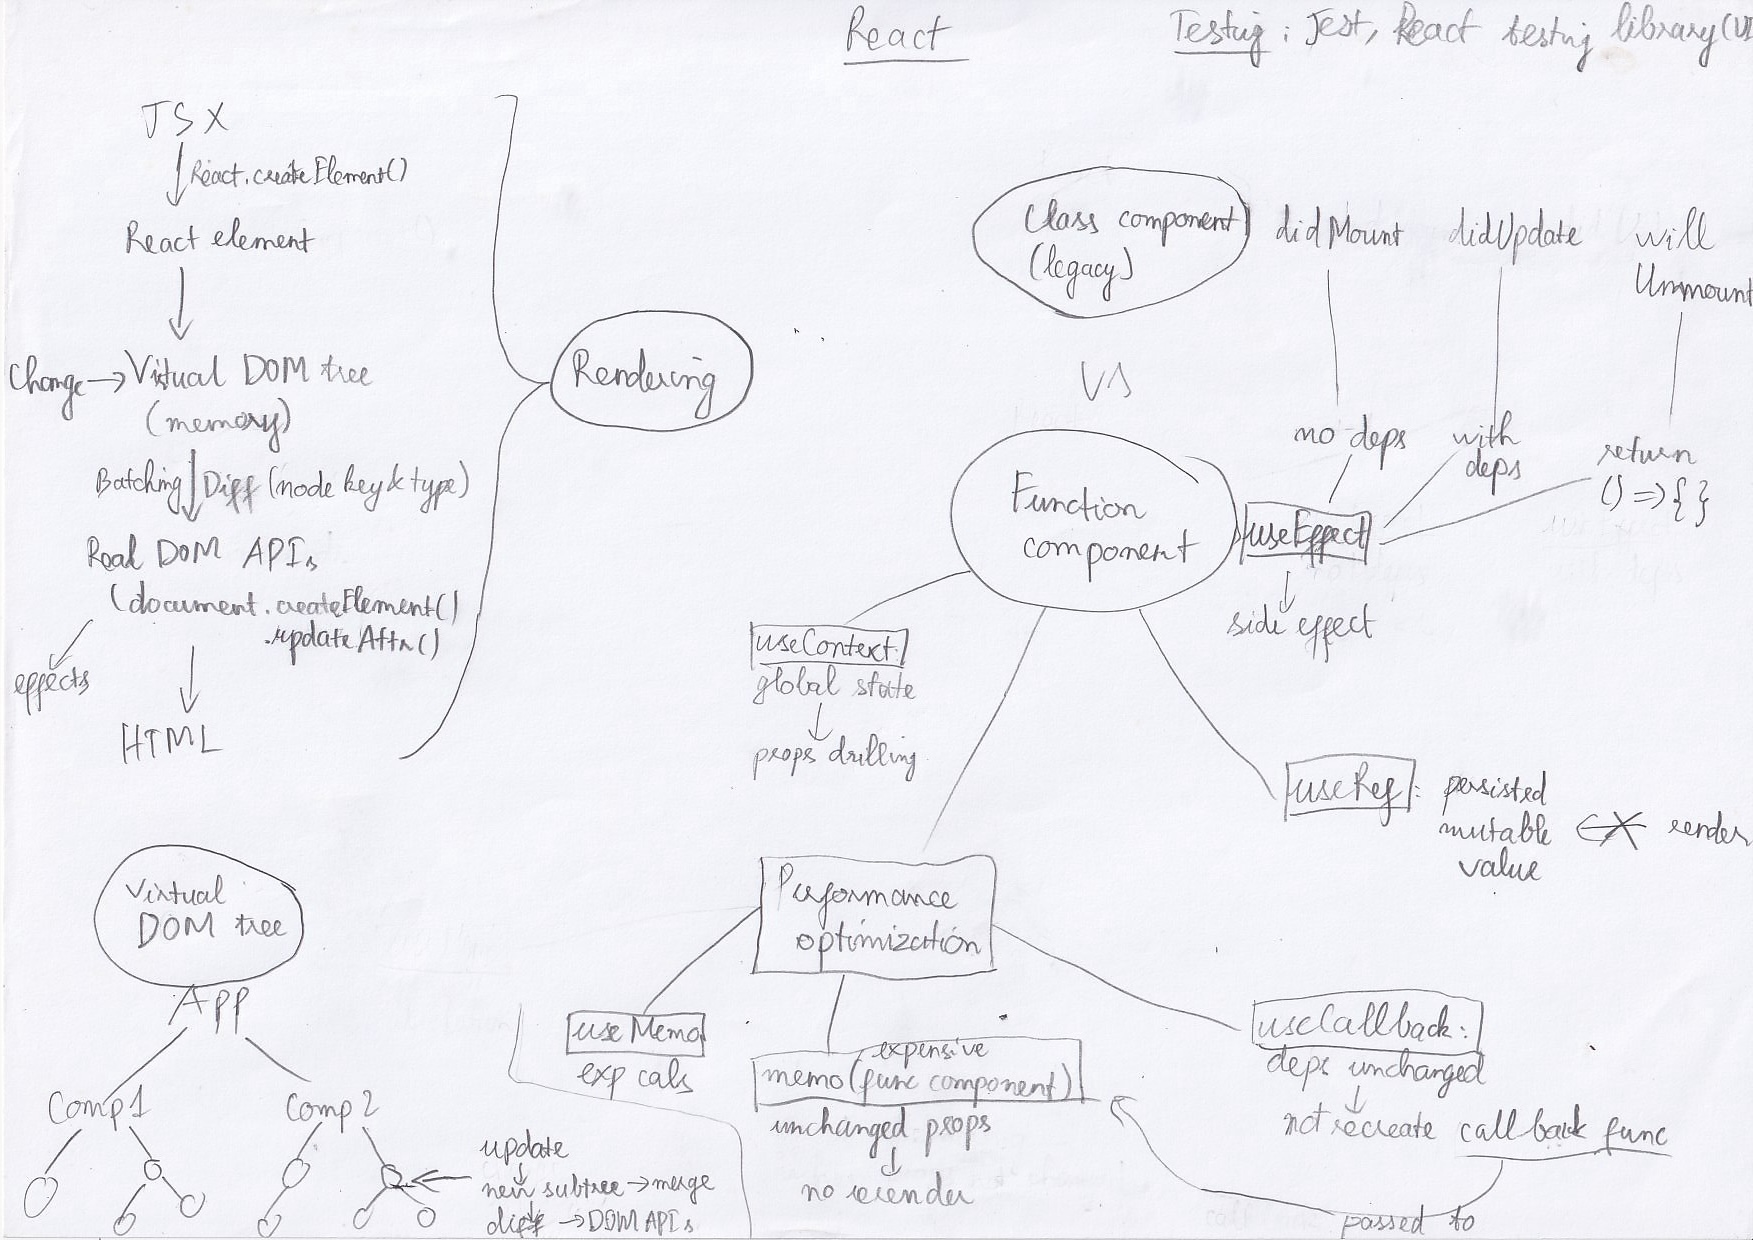 React
Testing: Jest, React testing library (UI
JSX
React.createElement()
React element
Change → Virtual DOM tree
(memory)
Batching Diff (node key & type)
Real DOM APIs
(document.createElement()
.updateAttr()
effects
HTML
Rendering
Class component
(legacy)
didMount
didUpdate
will
Unmount
vs
Function
component
no deps
with
deps
return
() => { }
useEffect
side effect
useContext
global state
props drilling
useRef : persisted
mutable
value
render
Performance
optimization
useMemo
exp cals
expensive
memo(func component)
unchanged props
no rerender
useCallback:
deps unchanged
not recreate callback func
passed to
Virtual
DOM tree
App
Comp1
Comp2
update
new subtree → merge
diff → DOM APIs